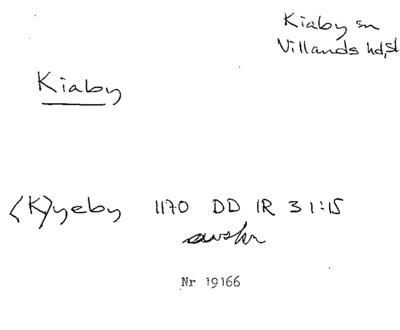 Kiaby sn
Villands hd, Sk
Kiaby
<K>yeby 1170 DD 1R 3 1:15
avskr
Nr 19166